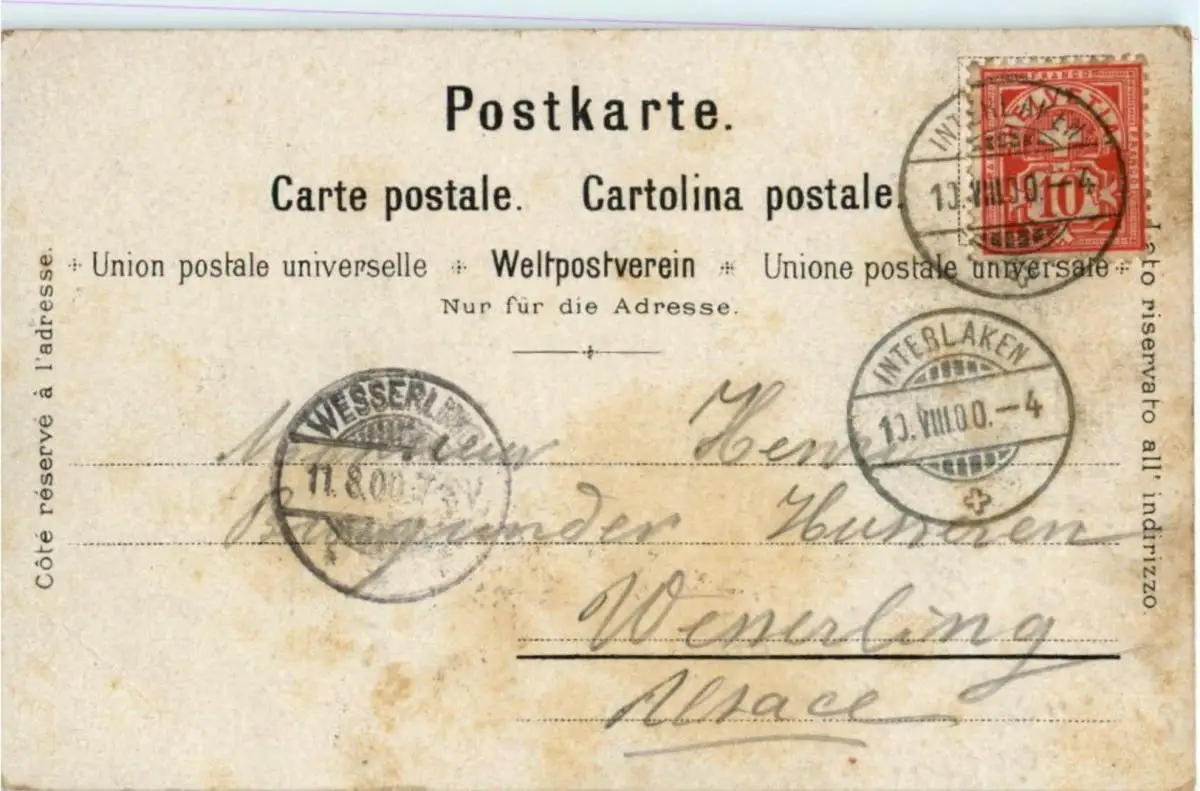 Postkarte.
Carte postale. Cartolina postale.
Union postale universelle Weltpostverein Unione postale universale
Nur für die Adresse.
Côté réservé à l'adresse.
Lato riservato all' indirizzo.
FRANCO
HELVETIA
10
INTERLAKEN
10.VIII.00.-4
INTERLAKEN
10.VIII.00.-4
WESSERLING
11.8.00.
Monsieur Henri
Burgunder Husseren
Wesserling
Alsace